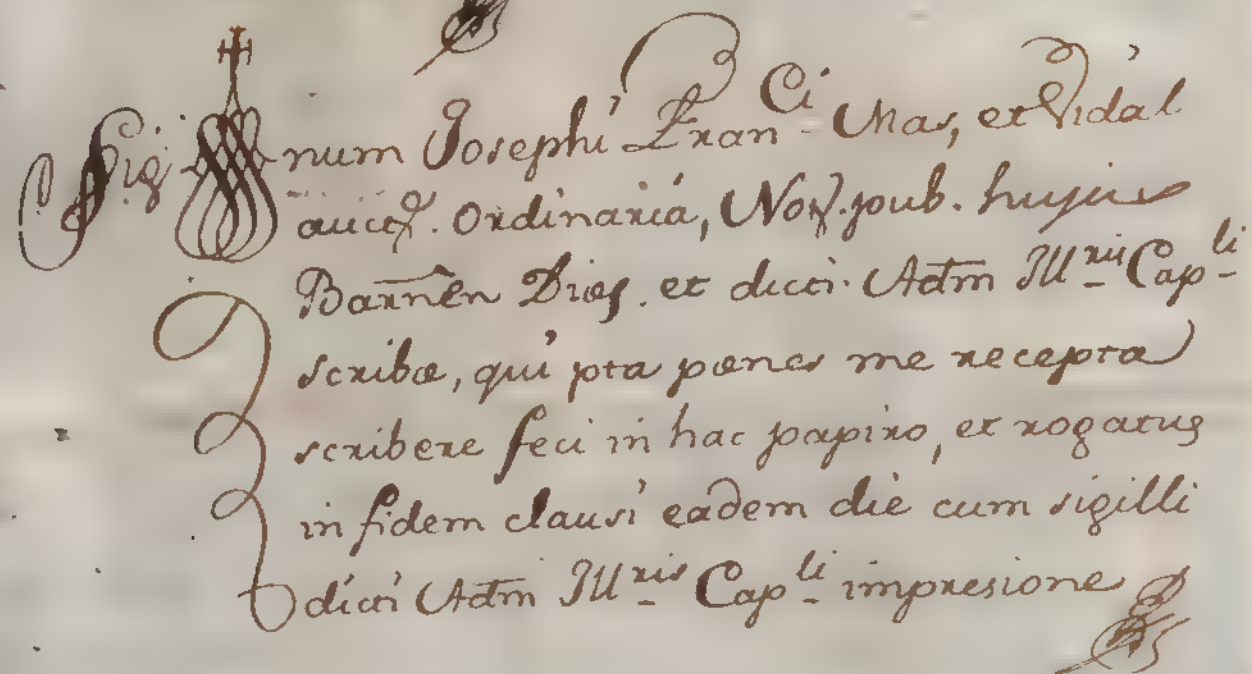 Sig num Josephi Fran^ci Mas, et Vidal
auict. Ordinaria, Not. pub. hujus
Barnen Dioes. et dicti Adm Ill^ris Cap^li
scribæ, qui pta pœnes me recepta
scribere feci in hac papiro, et rogatus
in fidem clausi eadem die cum sigilli
dicti Adm Ill^ris Cap^li impresione